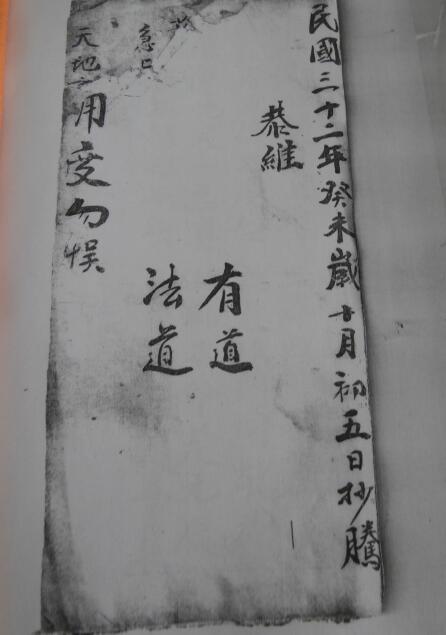 民國三十二年癸未歲十月初五日抄騰
恭維
有道
法道
急
天地之用变勿悮